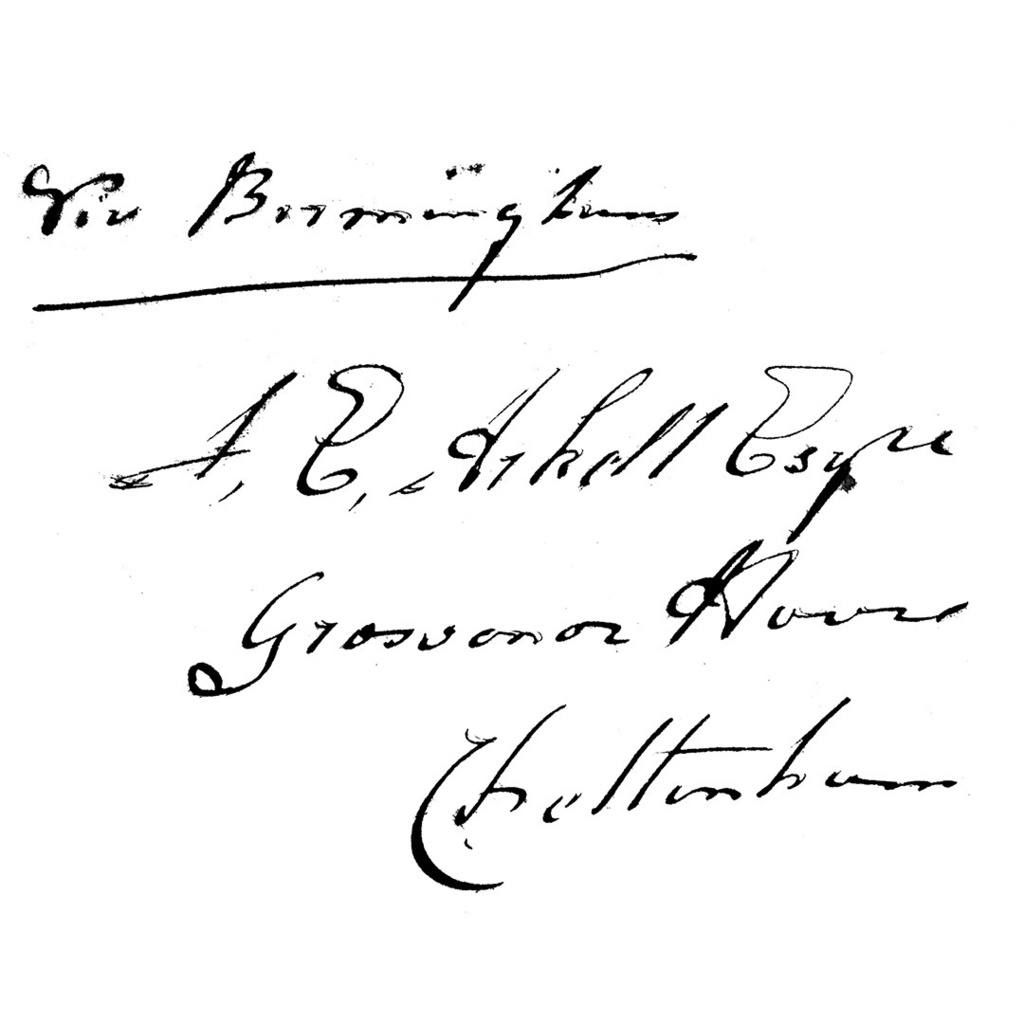 Via Birmingham
A, E, Arkell Esqre
Grosvenor House
Cheltenham